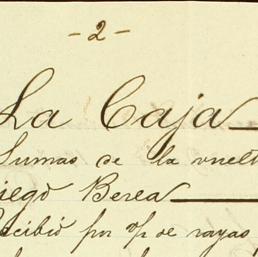 - 2 -
La Caja
Sumas de la vuelt
iego Berea
ecibió por o/p de rayas